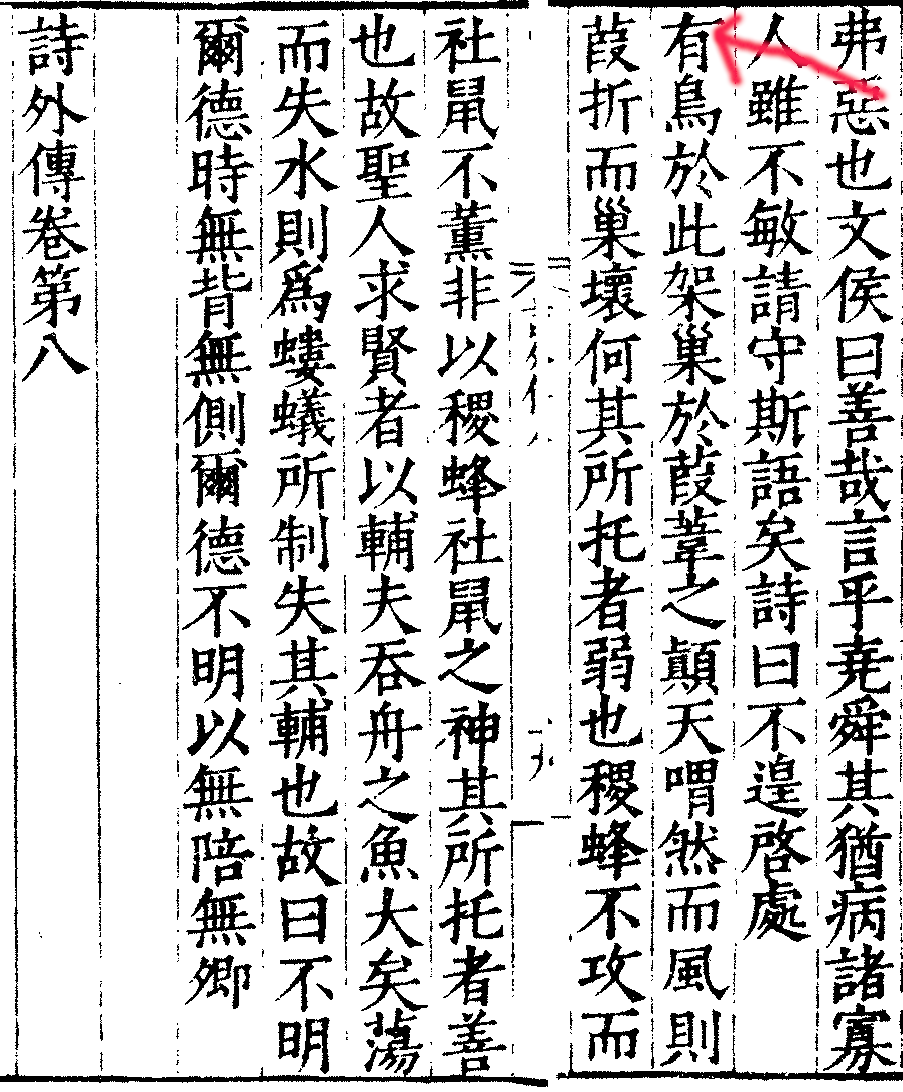 弗惡也文侯曰善哉言乎堯舜其猶病諸寡
人雖不敏請守斯語矣詩曰不遑啓處
有鳥於此架巢於葭葦之顛天喟然而風則
葭折而巢壞何其所托者弱也稷蜂不攻而
社鼠不薰非以稷蜂社鼠之神其所托者善
也故聖人求賢者以輔夫吞舟之魚大矣蕩
而失水則爲螻蟻所制失其輔也故曰不明
爾德時無背無側爾德不明以無陪無卿
詩外傳卷第八